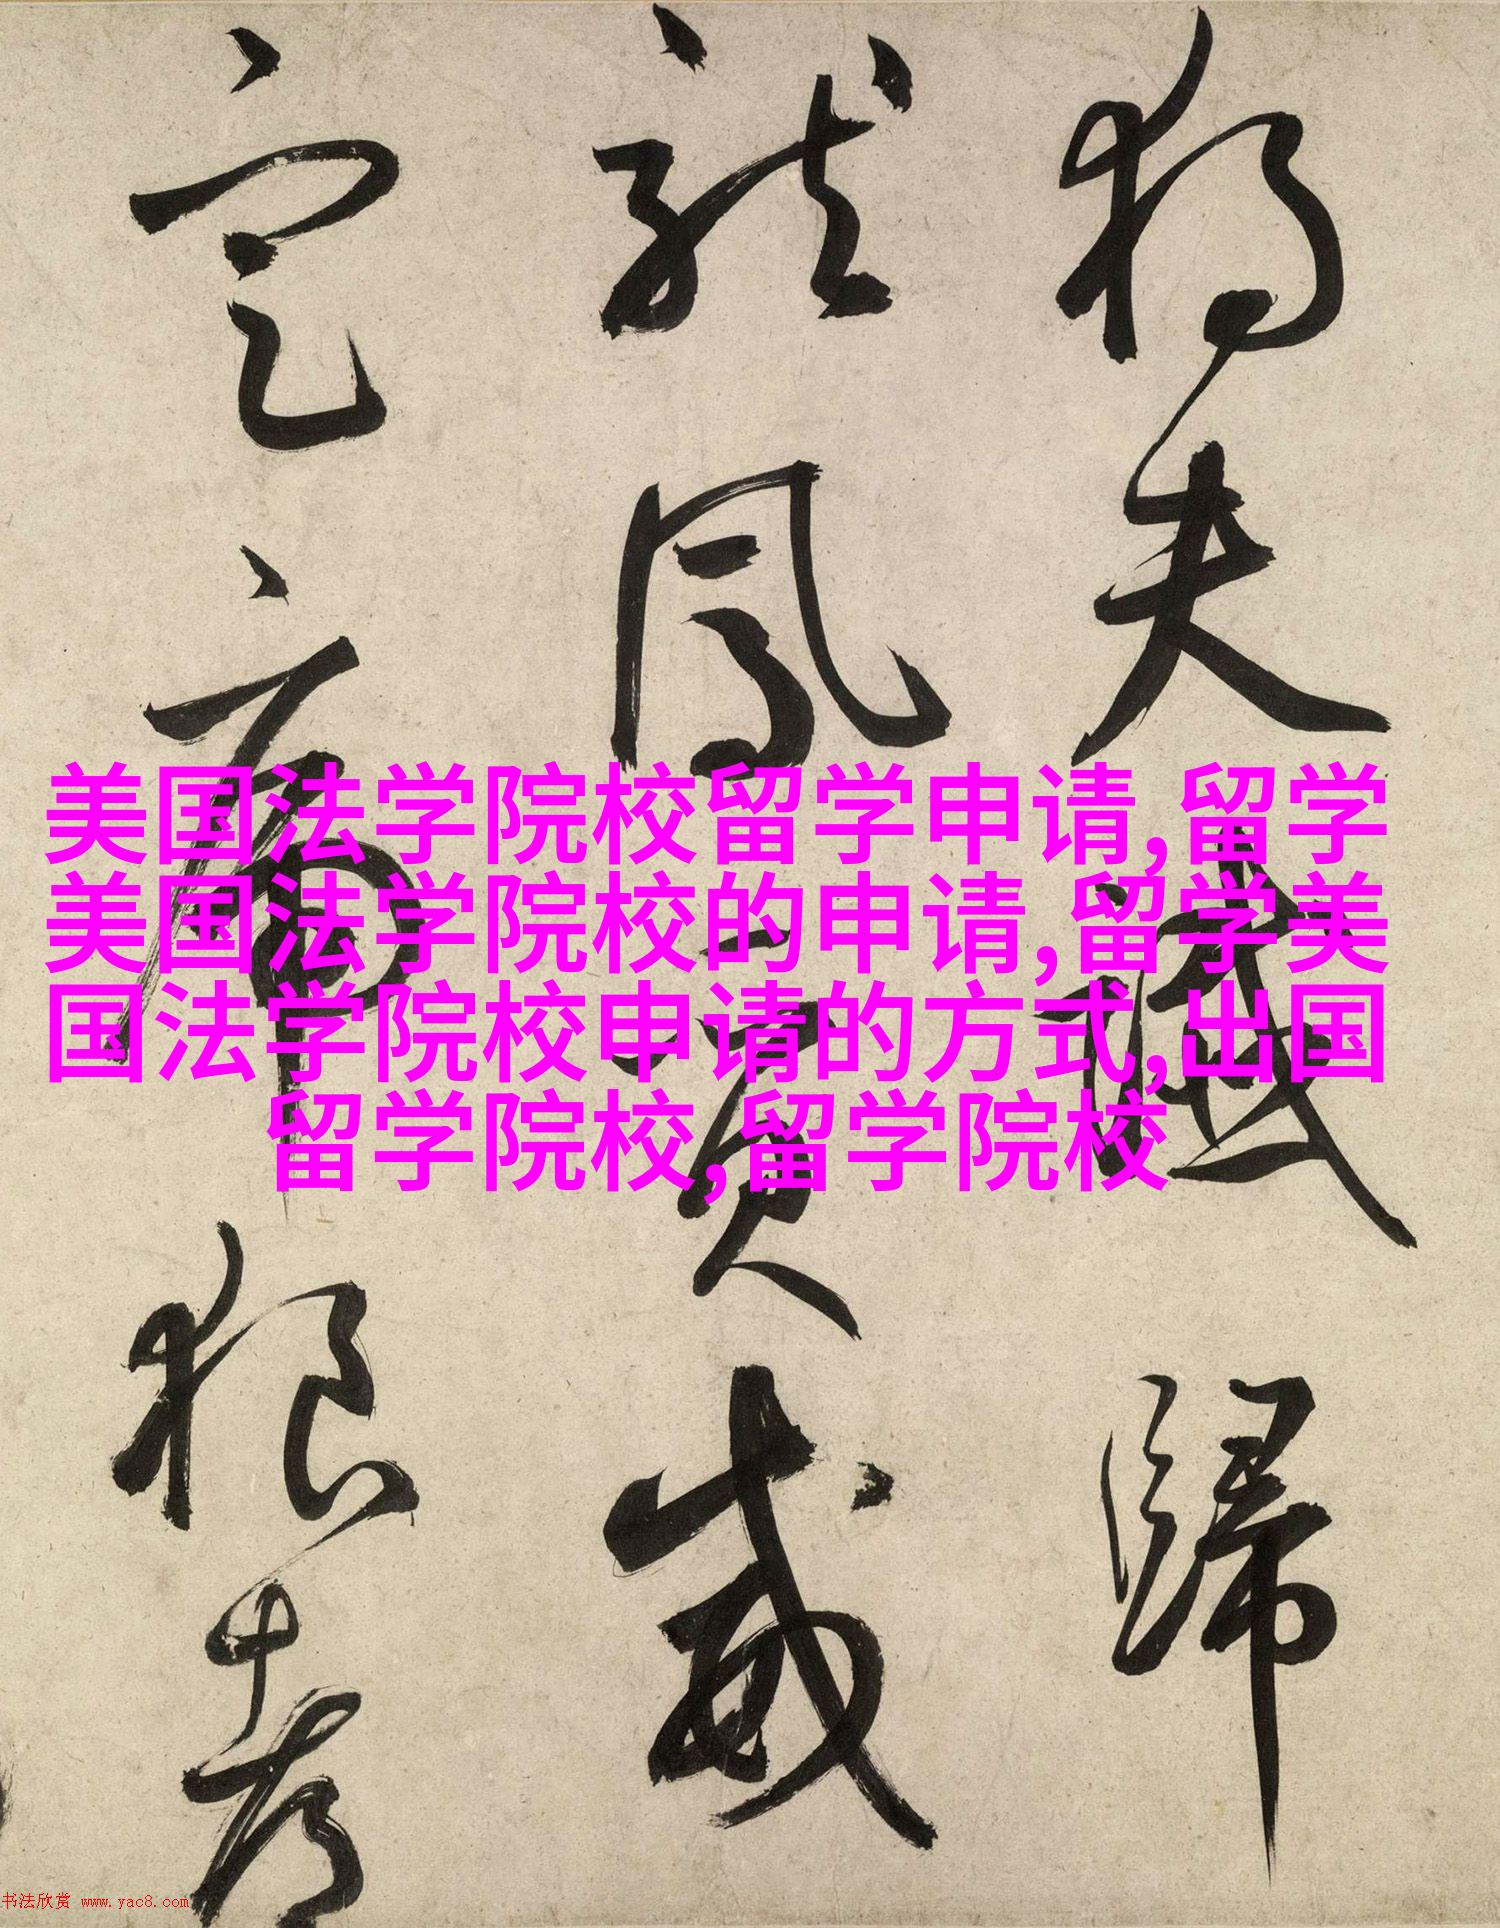 獨夫讖歸
龍鳳質威
定虎狼都
美国法学院校留学申请,留学
美国法学院校的申请,留学美
国法学院校申请的方式,出国
留学院校,留学院校
书法欣赏 www.yac8.com